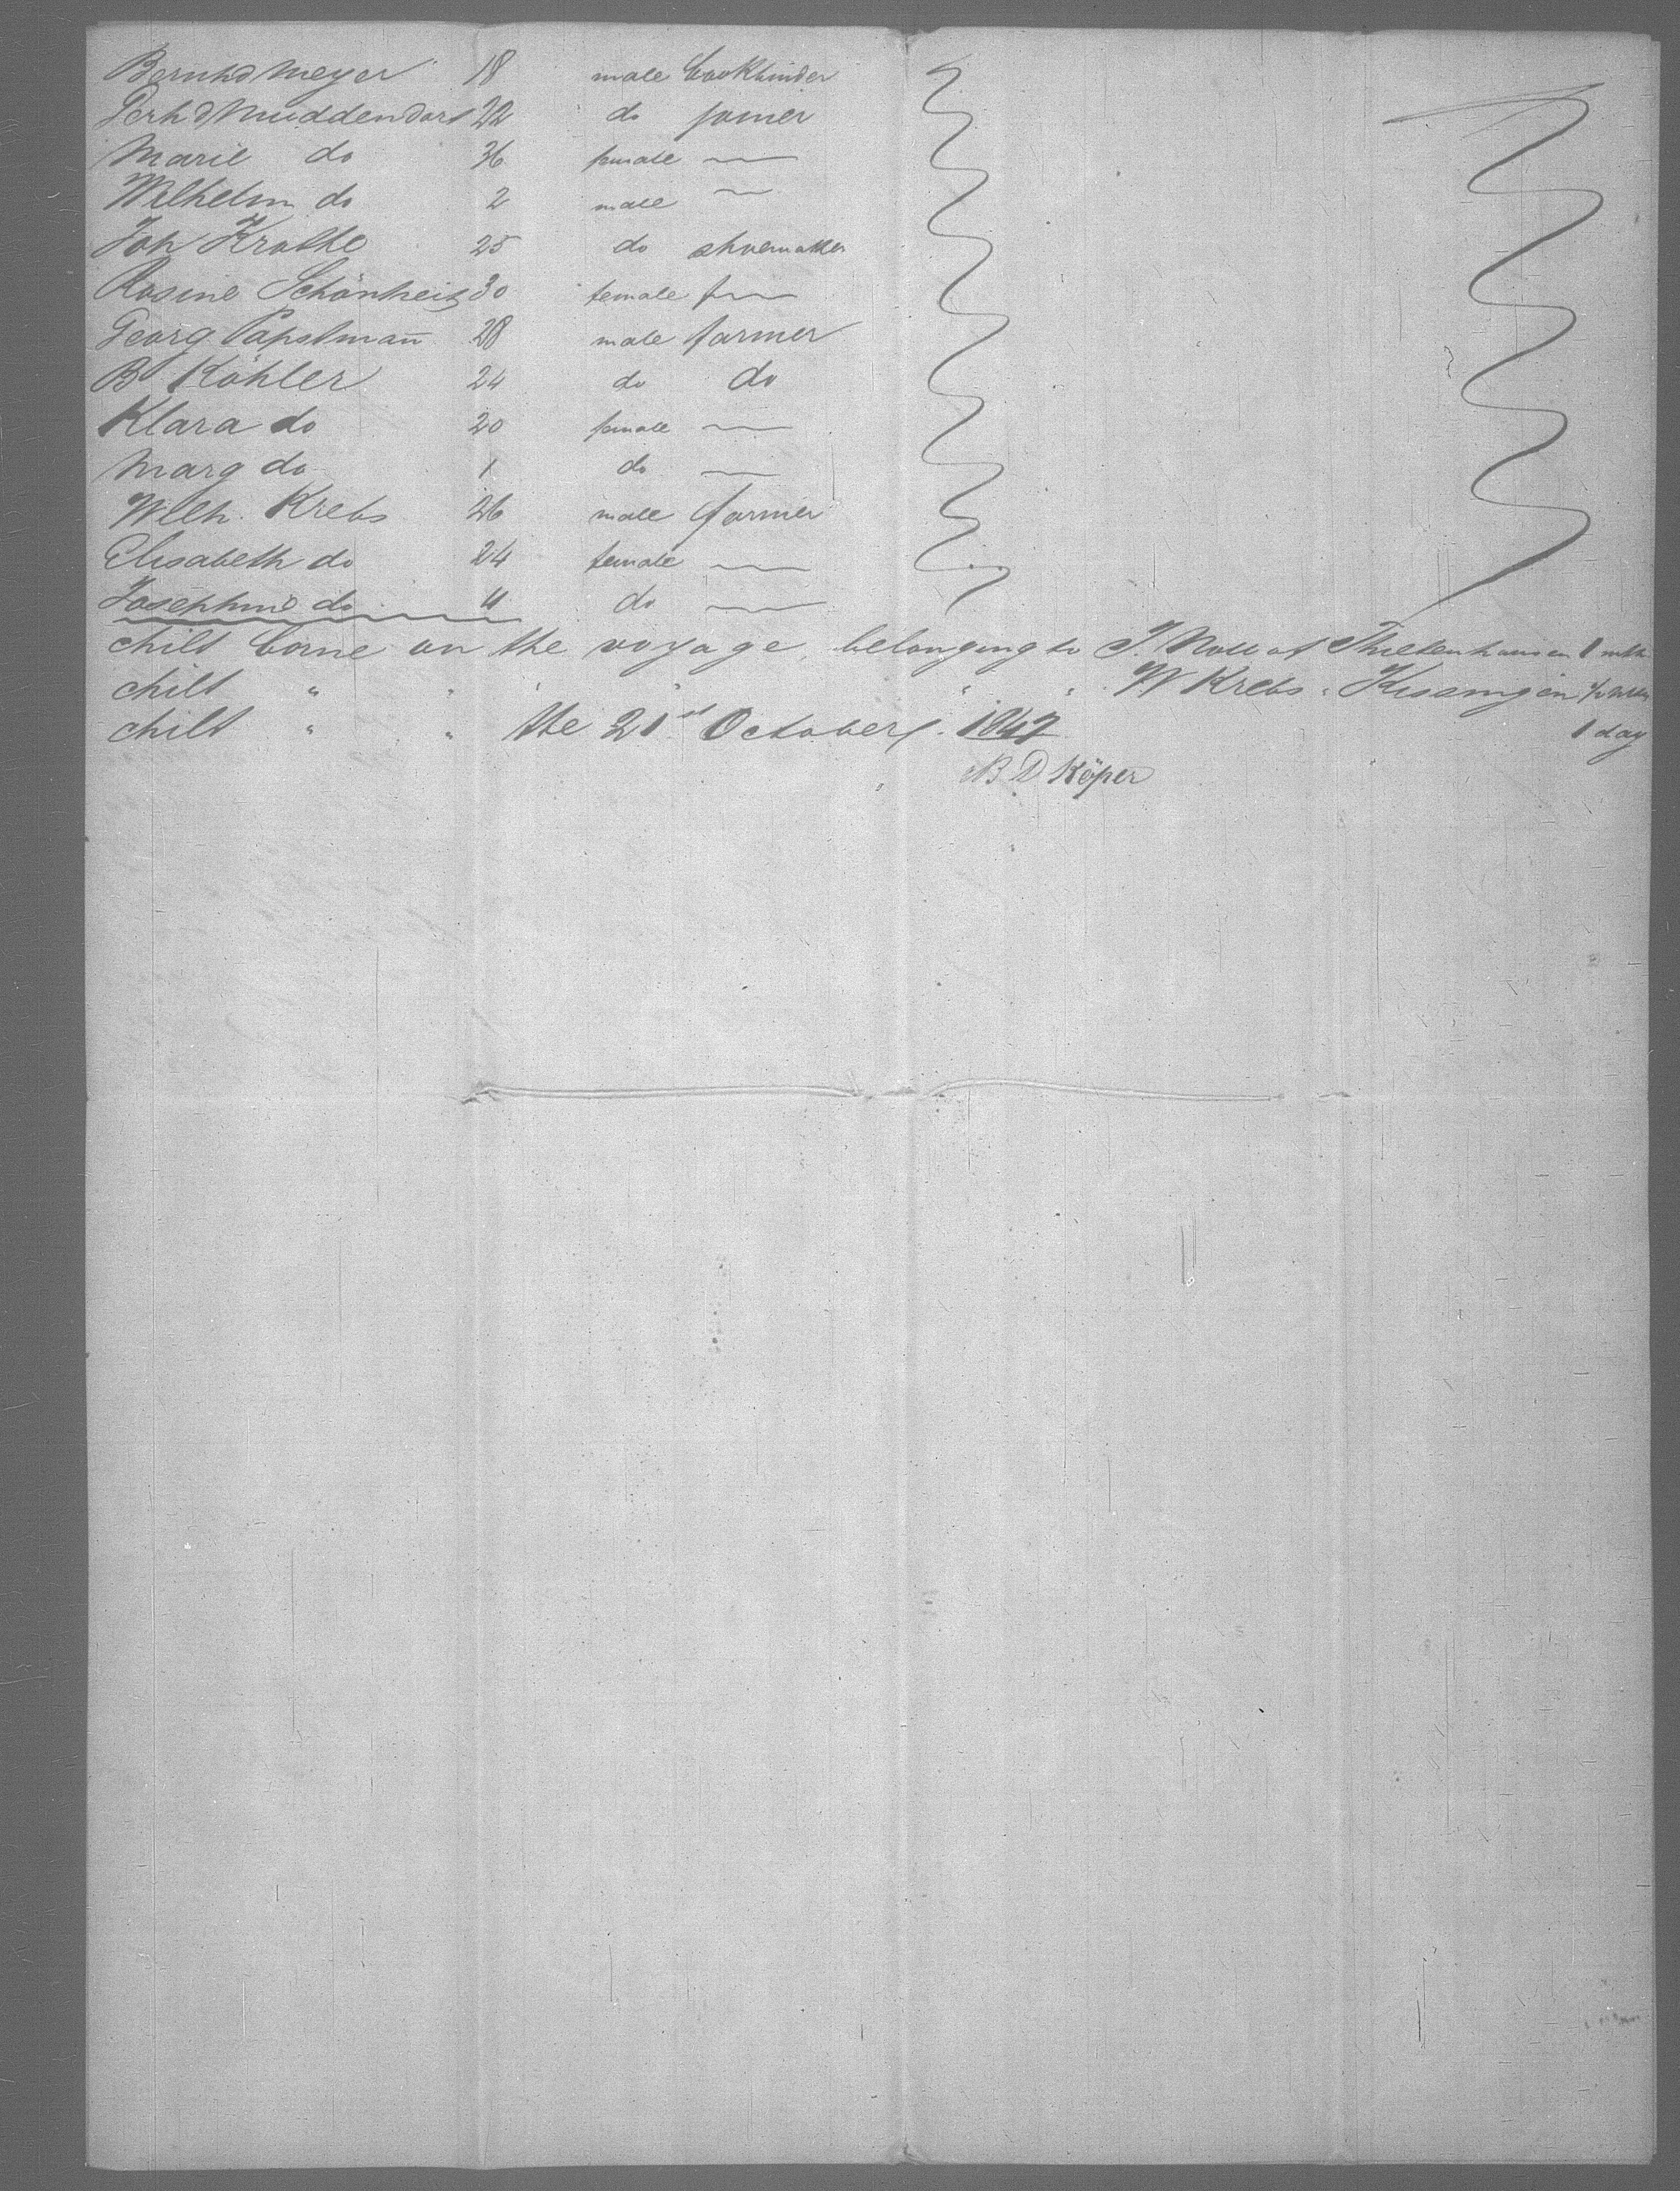 Bernhd Meyer 18 male bookbinder
Gerhd Muddendorf 22 do joiner
Marie do 36 female —
Wilhelm do 2 male —
Joh Krolle 25 do shoemaker
Rosine Schönheit 30 female —
Georg Papstmañ 28 male farmer
B Köhler 24 do do
Klara do 20 female —
Marg do 1 do —
Wilh. Krebs 26 male farmer
Elisabeth do 24 female —
Josephine do 4 do —
chilt borne on the voyage, belonging to J. Noll of 1 mth
chilt " " " " " " W Krebs " Kissingen
chilt " " the 21st October 1847 1 day
B D Köper